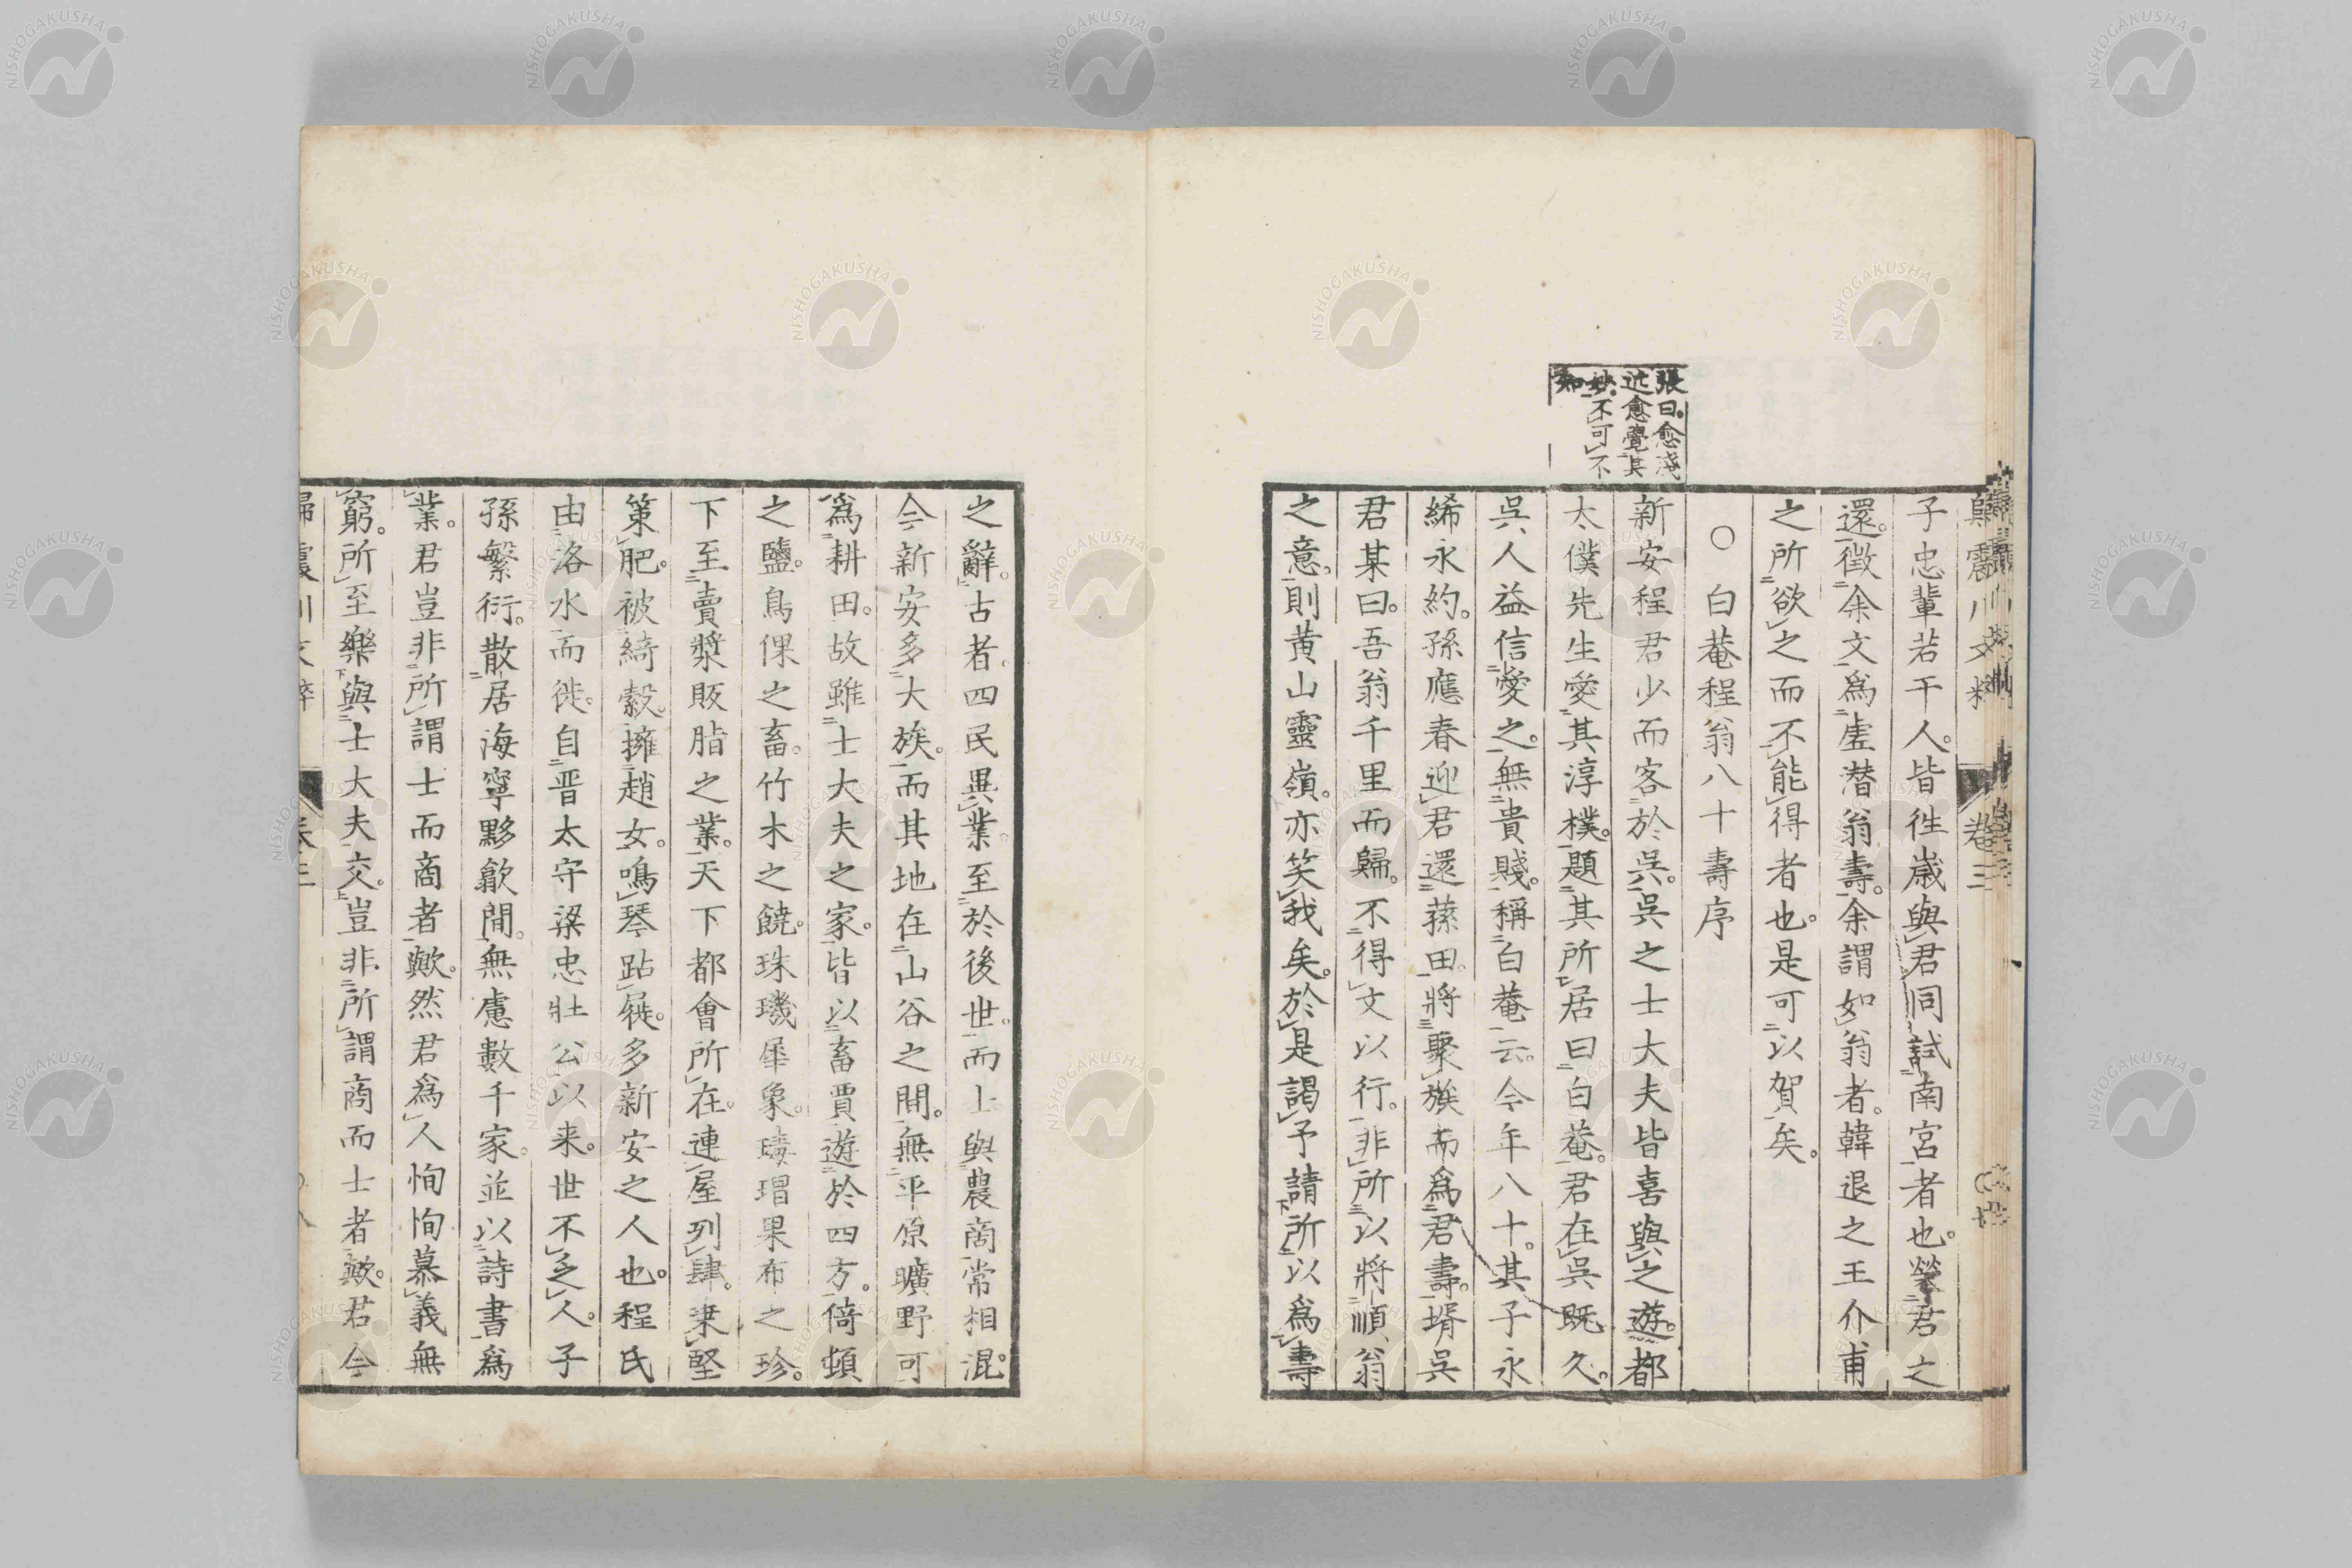 歸震川文粹　卷三
子忠輩若干人。皆徃歳與君同試南宮者也。㷀君之
還。徴余文爲虗潜翁壽。余謂如翁者。韓退之王介甫
之所欲之而不能得者也。是可以賀矣。
○白菴程翁八十壽序
張曰。愈淺
近愈覺其
妙。不可不
知
新安程君少而客於吳。吳之士大夫皆喜與之遊。都
太僕先生愛其淳樸。題其所居曰白菴。君在吳既久。
吳人益信愛之。無貴賤。稱白菴云。今年八十。其子永
綈永約。孫應春迎君還蓀田。將聚族而爲君壽。壻吳
君某曰。吾翁千里而歸。不得文以行。非所以將順翁
之意。則黄山靈嶺。亦笑我矣。於是謁予請所以爲壽
之辭。古者四民異業。至於後世。而士與農商常相混。
今新安多大族。而其地在山谷之間。無平原曠野可
爲耕田。故雖士大夫之家。皆以畜賈遊於四方。倚頓
之鹽。烏倮之畜。竹木之饒。珠璣犀象。瑇瑁果布之珍。
下至賣漿販脂之業。天下都會所在。連屋列肆。乗堅
策肥。被綺縠。擁趙女。鳴琴跕屣。多新安之人也。程氏
由洛水而徙。自晋太守梁忠壯公以来。世不乏人。子
孫繁衍。散居海寧黟歙間。無慮數千家。並以詩書爲
業。君豈非所謂士而商者歟。然君爲人恂恂慕義無
窮。所至樂與士大夫交。豈非所謂商而士者歟。君今
歸震川文粹　卷三